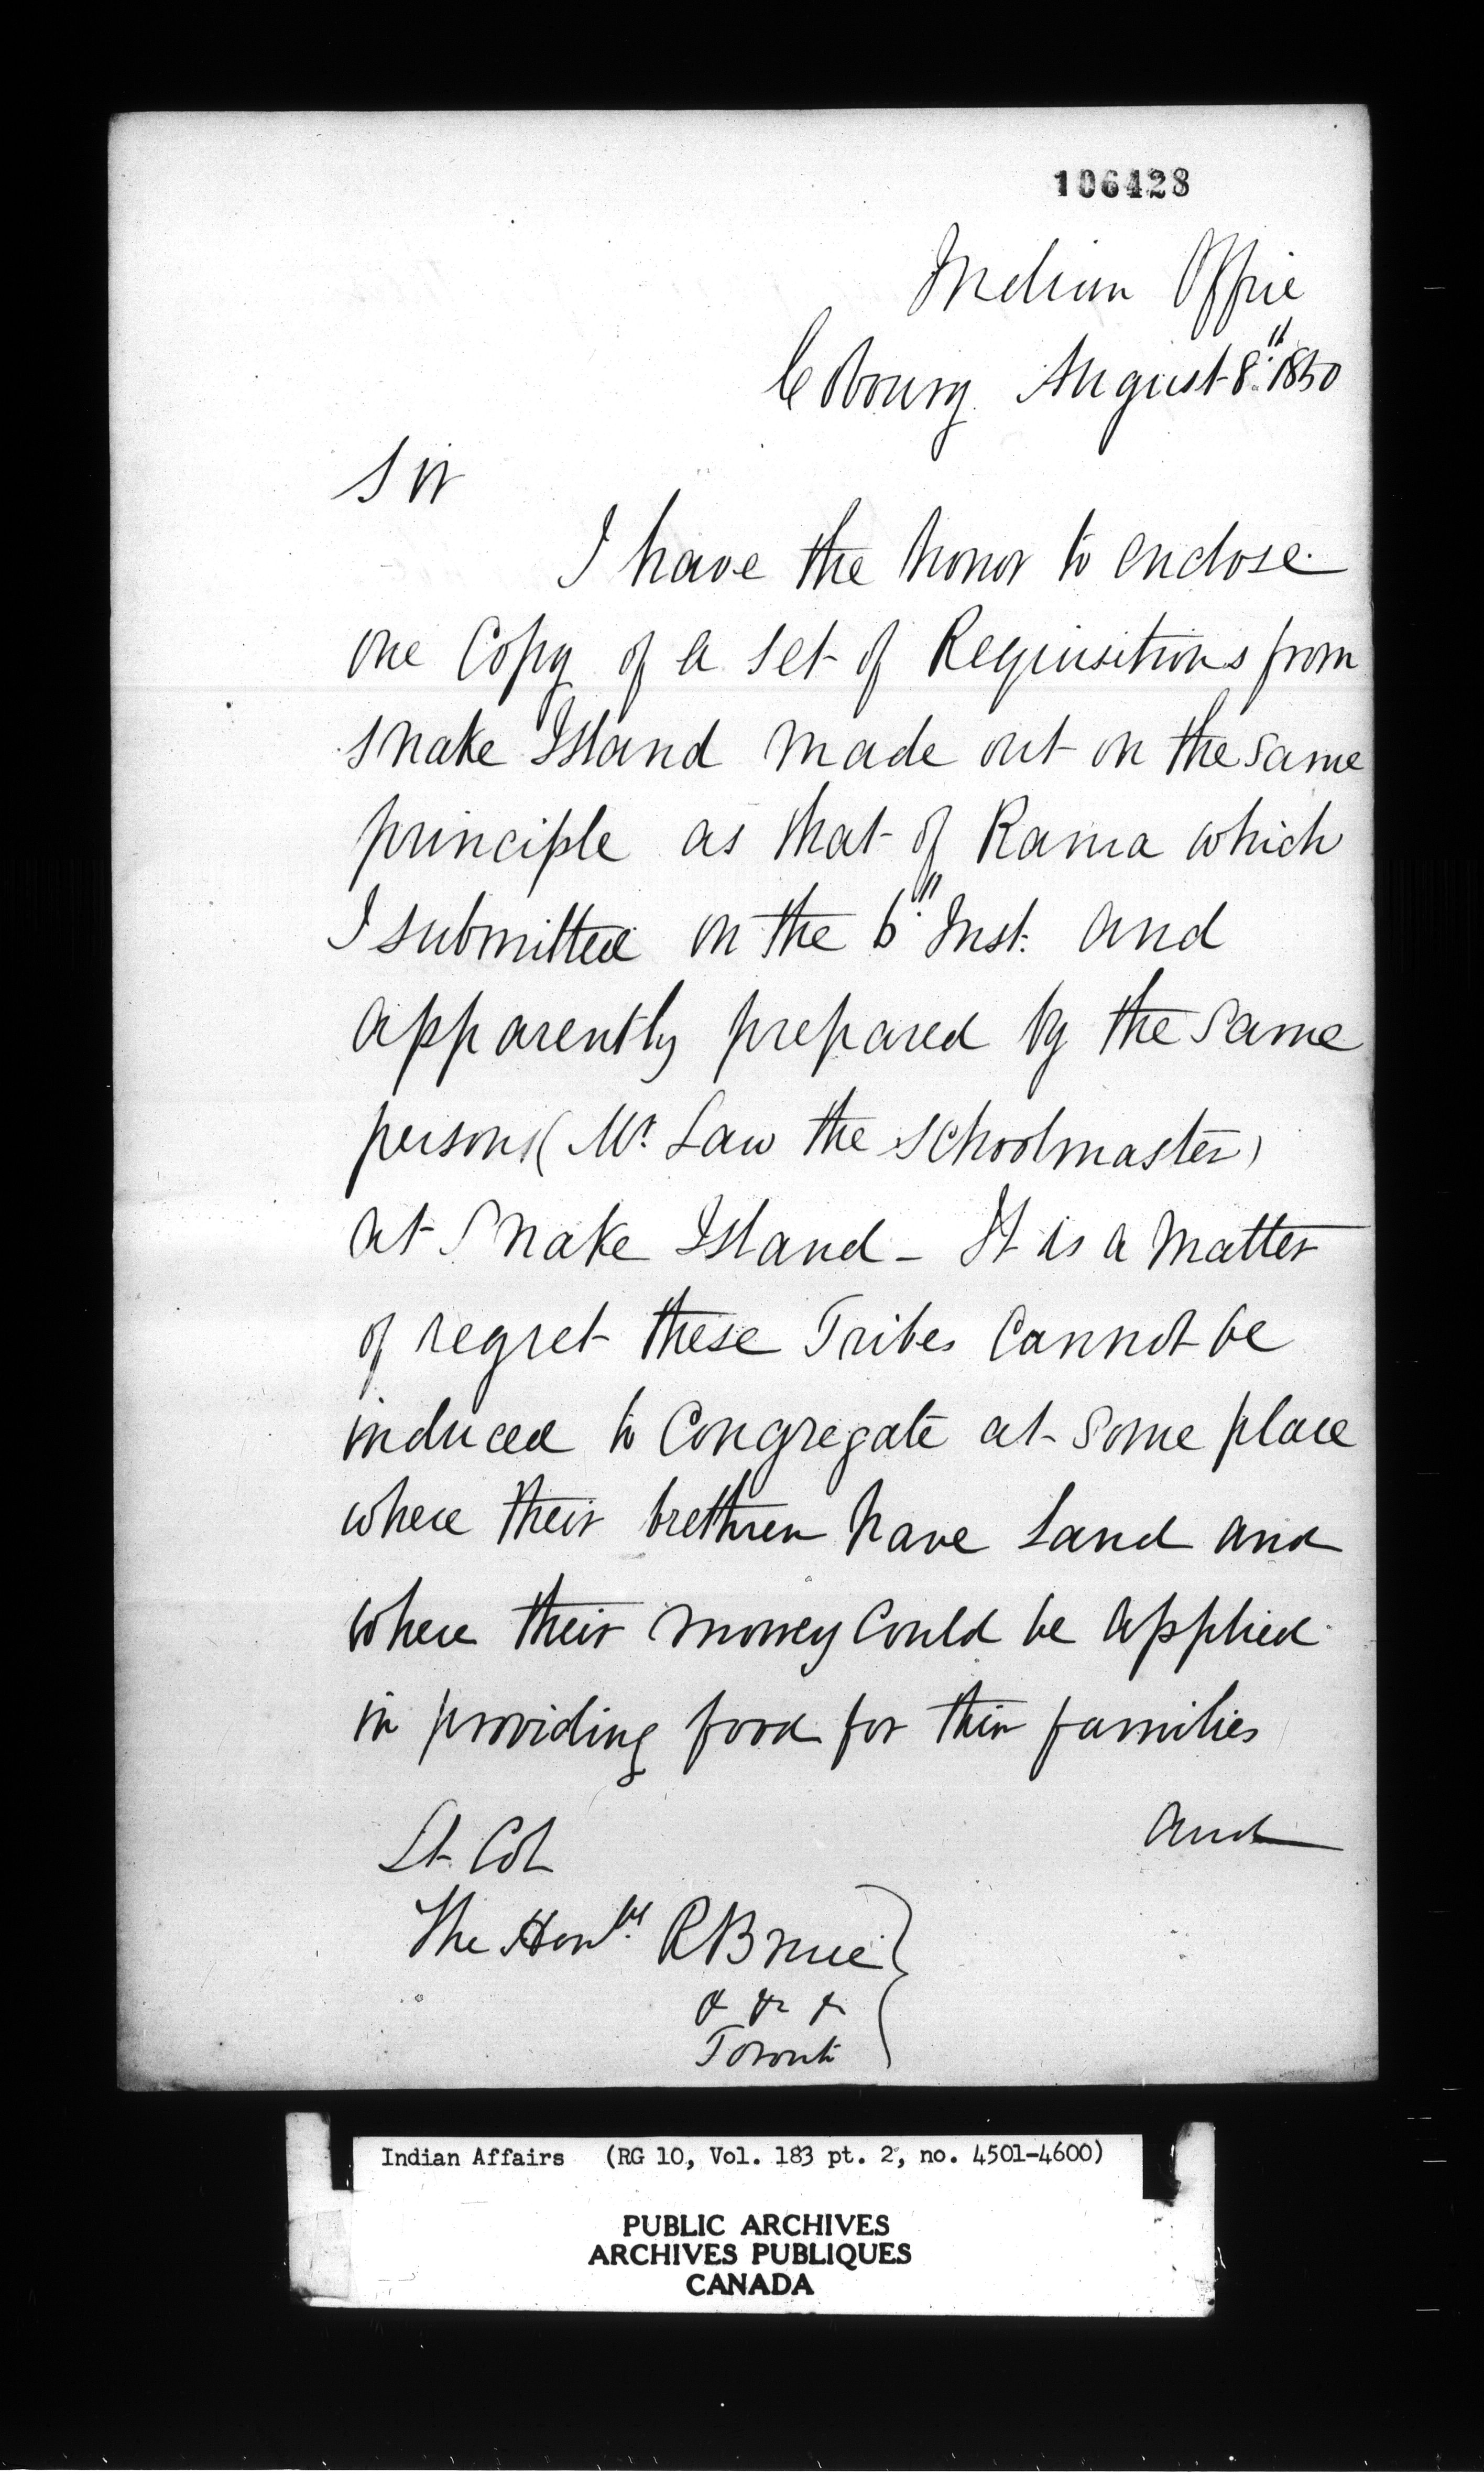 106428
Indian Office
Cobourg August 8th 1850
Sir
I have the honor to enclose
one Copy of a set of Requisitions from
Snake Island made out on the same
principle as that of Rama which
I submitted on the 6" Inst. and
apparently prepared by the same
persons (Mr. Law the Schoolmaster)
at Snake Island - It is a matter
of regret these Tribes Cannot be
induced to Congregate at some place
where their brethren have Land and
where their money Could be applied
in providing food for their families
and
Lt. Col
The Honble R Bruce
& & &
Toronto
Indian Affairs (RG 10, Vol. 183 pt. 2, no. 4501-4600)
PUBLIC ARCHIVES
ARCHIVES PUBLIQUES
CANADA